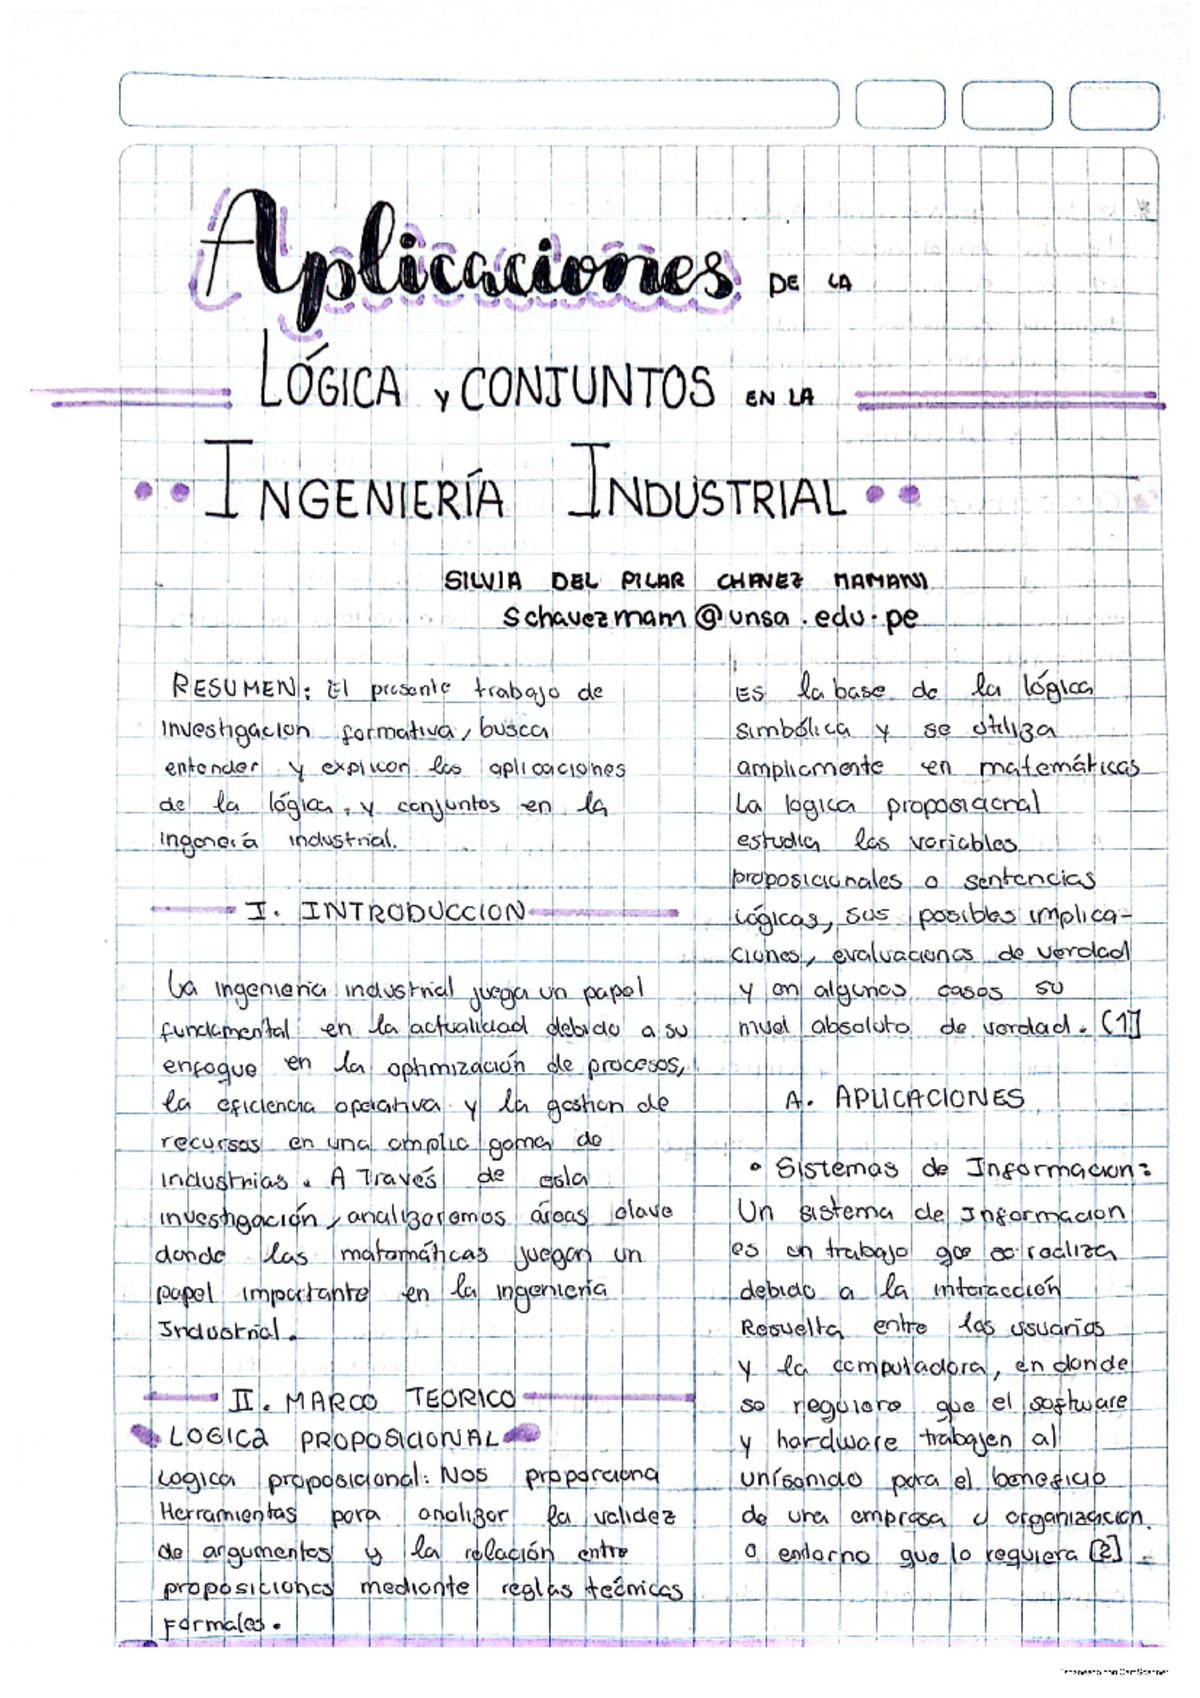 Aplicaciones DE LA
LÓGICA Y CONJUNTOS EN LA
INGENIERÍA INDUSTRIAL
SILVIA DEL PILAR CHAVEZ MAMANI
Schavezmam@unsa.edu.pe
RESUMEN: El presente trabajo de
investigacion formativa, busca
entender y explicar las aplicaciones
de la lógica, y conjuntos en la
ingeneria industrial.
I. INTRODUCCION
La ingenieria industrial juega un papel
fundamental en la actualidad debido a su
enfoque en la optimización de procesos,
la eficiencia operativa y la gestion de
recursos en una amplia gama de
industrias. A Través de esta
investigación, analizaremos áreas clave
donde las matemáticas juegan un
papel importante en la ingeniería
Industrial.
II. MARCO TEORICO
LOGICA PROPOSICIONAL
Logica proposicional: Nos proporciona
Herramientas para analizar la validez
de argumentos y la relación entre
proposiciones mediante reglas teénicas
Formales.
Es la base de la lógica
simbólica y se utiliza
ampliamente en matemáticas
La logica proposicional
estudia las variables
proposicionales o sentencias
lógicas, sus posibles implica-
ciones, evaluaciones de verdad
y en algunos casos su
nivel absoluto de verdad. [1]
A. APLICACIONES
• Sistemas de Informacion:
Un sistema de Informacion
es un trabajo que se realiza
debido a la interacción
Resuelta entre los usuarios
y la computadora, en donde
se requiere que el software
y hardware trabajen al
unísonido para el beneficio
de una empresa u organizacion
o entorno que lo requiera [2].